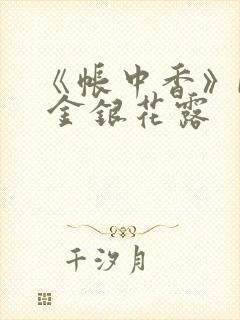 《帐中香》
金银花露
千汐月